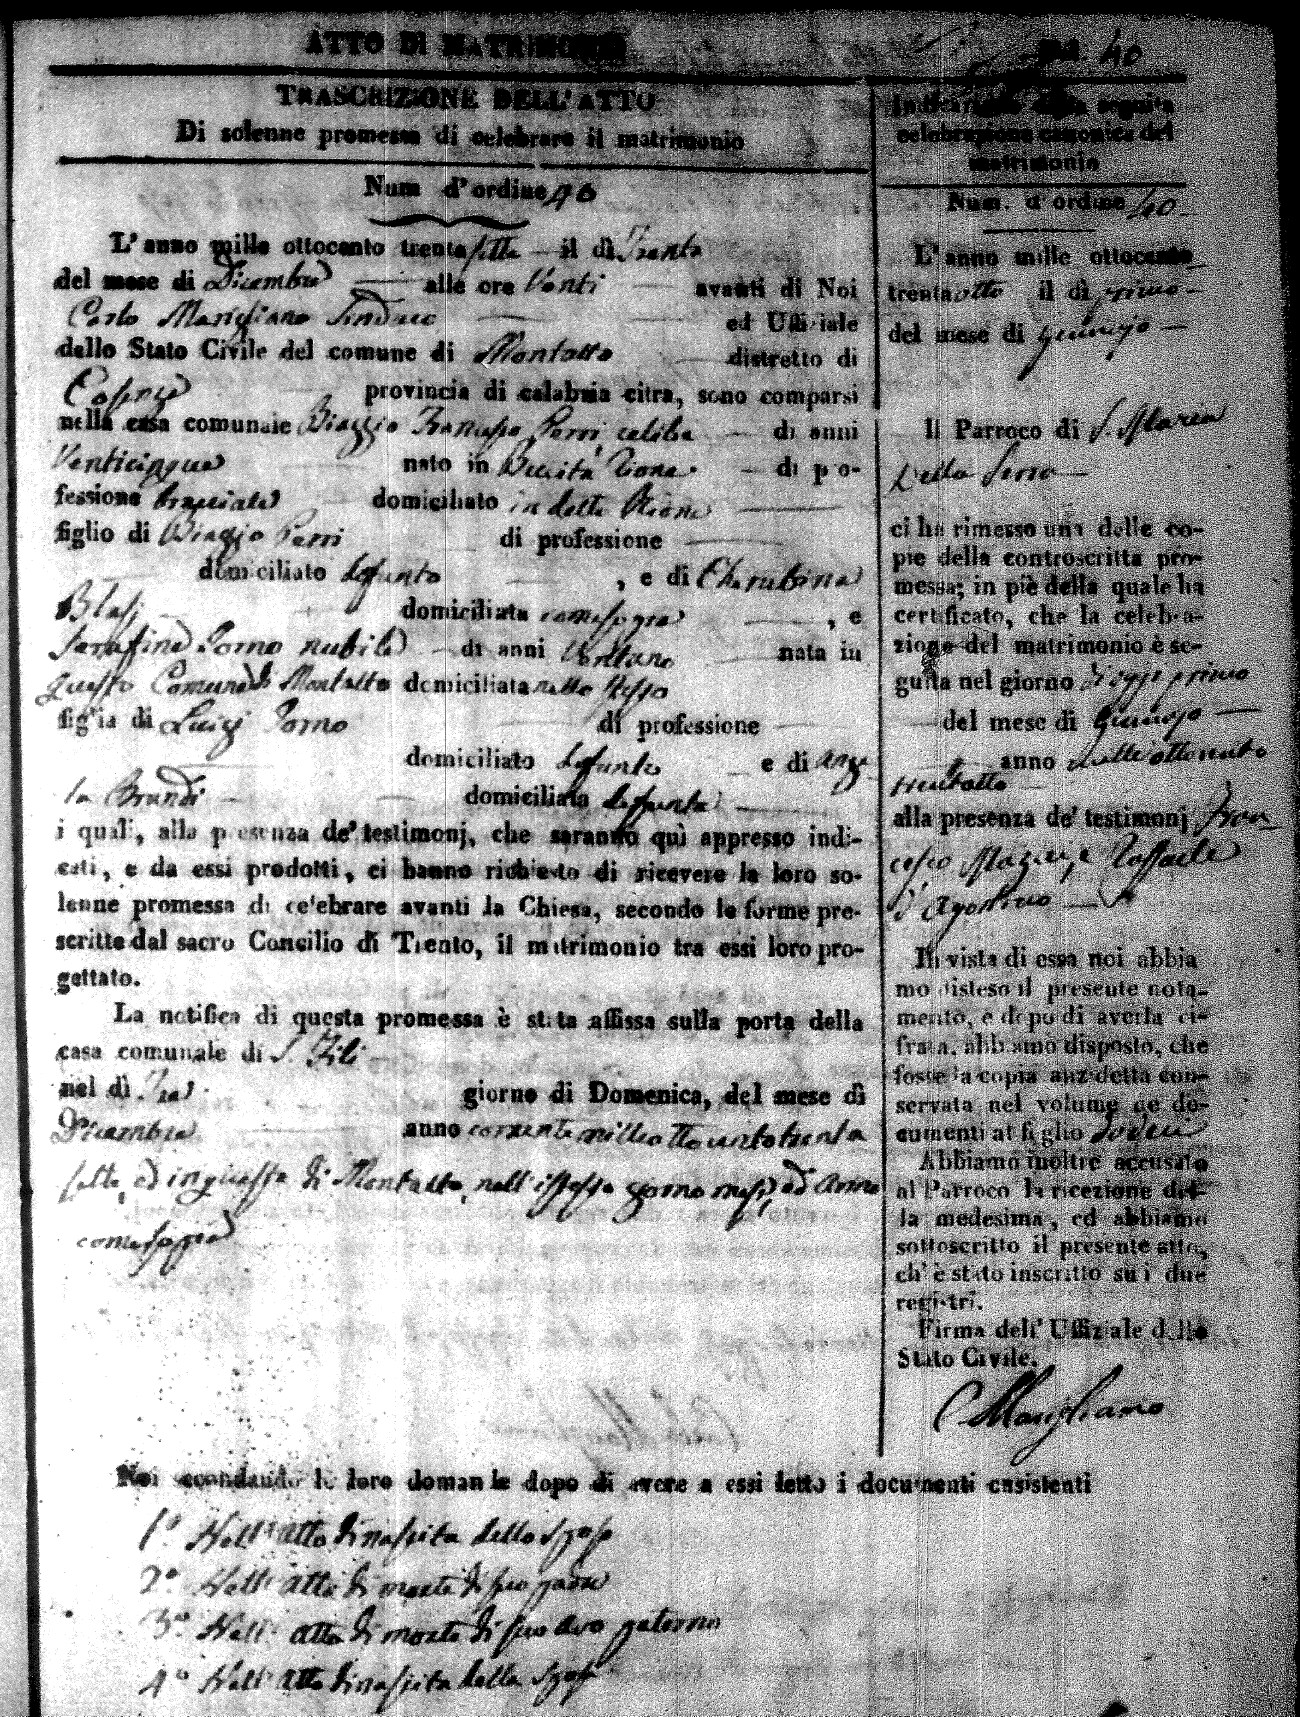 ATTO DI MATRIMONIO
40
TRASCRIZIONE DELL'ATTO
Di solenne promessa di celebrare il matrimonio
Num d'ordine 40
L'anno mille ottocento trenta sette il dì Trenta
del mese di Dicembre alle ore Venti avanti di Noi
Carlo Marigliano Sindaco ed Uffiziale
dello Stato Civile del comune di Montalto distretto di
provincia di calabria citra, sono comparsi
nella casa comunale Biaggio Perri celibe di anni
Venticinque nato in di pro-
fessione bracciale domiciliato in detto
figlio di Biagio Perri di professione
domiciliato defunto , e di Cherubina
Blasi domiciliata come sopra , e
Serafina Porno nubile di anni Ventuno nata in
questo Comune di Montalto domiciliata nello stesso
figlia di Luigi Porno di professione
domiciliato defunto e di Ange
la Brundi domiciliata defunta
i quali, alla presenza de' testimonj, che saranno quì appresso indi-
cati, e da essi prodotti, ci hanno richiesto di ricevere la loro so-
lenne promessa di celebrare avanti la Chiesa, secondo le forme pre-
scritte dal sacro Concilio di Trento, il matrimonio tra essi loro pro-
gettato.
La notifica di questa promessa è stata affissa sulla porta della
casa comunale di S. Fili
nel dì Tre giorno di Domenica, del mese di
Dicembre anno corrente mille ottocento trenta
sette, ed in questa di Montalto, nell'istesso giorno mese, ed Anno
come sopra
Indicazione della seguita
celebrazione canonica del
matrimonio
Num. d'ordine 40
L'anno mille ottocento
trentaotto il dì primo
del mese di Gennajo
Il Parroco di S. Maria
Della Serra
ci ha rimesso una delle co-
pie della controscritta pro-
messa; in piè della quale ha
certificato, che la celebra-
zione del matrimonio è se-
guita nel giorno di oggi primo
del mese di Gennajo
anno mille ottocento
trentotto
alla presenza de' testimonj Fran
cesco e Raffaele
d'Agostino
In vista di essa noi abbia
mo disteso il presente nota-
mento, e dopo di averla ci-
frata, abbiamo disposto, che
fosse la copia anzidetta con-
servata nel volume de' do-
cumenti al foglio dodeci
Abbiamo inoltre accusato
al Parroco la ricezione del-
la medesima, ed abbiamo
sottoscritto il presente atto,
ch' è stato inscritto su i due
registri.
Firma dell' Uffiziale dello
Stato Civile.
C Marigliano
Noi secondando le loro domande dopo di avere a essi letto i documenti cnsistenti
1.° Nell'atto di nascita dello sposo
2.° Nell'atto di morte di suo padre
3.° Nell'atto di morte di suo avo paterno
4.° Nell'atto di nascita della sposa